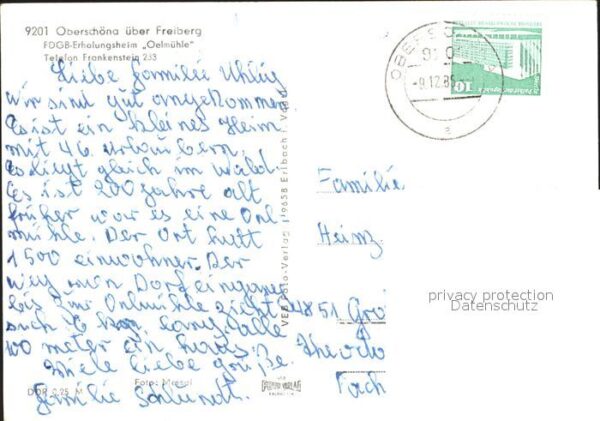 9201 Oberschöna über Freiberg
FDGB-Erholungsheim „Oelmühle"
Telefon Frankenstein 233
Liebe Familie Uhlig
Wir sind gut angekommen
Es ist ein kleines Heim
mit 46 urlaubern
Es liegt gleich im wald
Es ist 200 Jahre alt
früher war es eine Oel
mühle. Der Ort hatt
1500 einwohner. Der
weg von Dorfeingang
bis zur Oelmühle zieht
sich 6 km lang alle
100 meter ein haus
Viele liebe grüße.
Familie Schlundt.
DDR 0,25 M
Foto:
VEB Foto-Verlag 9658 Erlbach i. Vogtl.
9201
-9.12.85
a
10
Familie
Heinz
4851 Grö
Theodo
Fach
privacy protection
Datenschutz